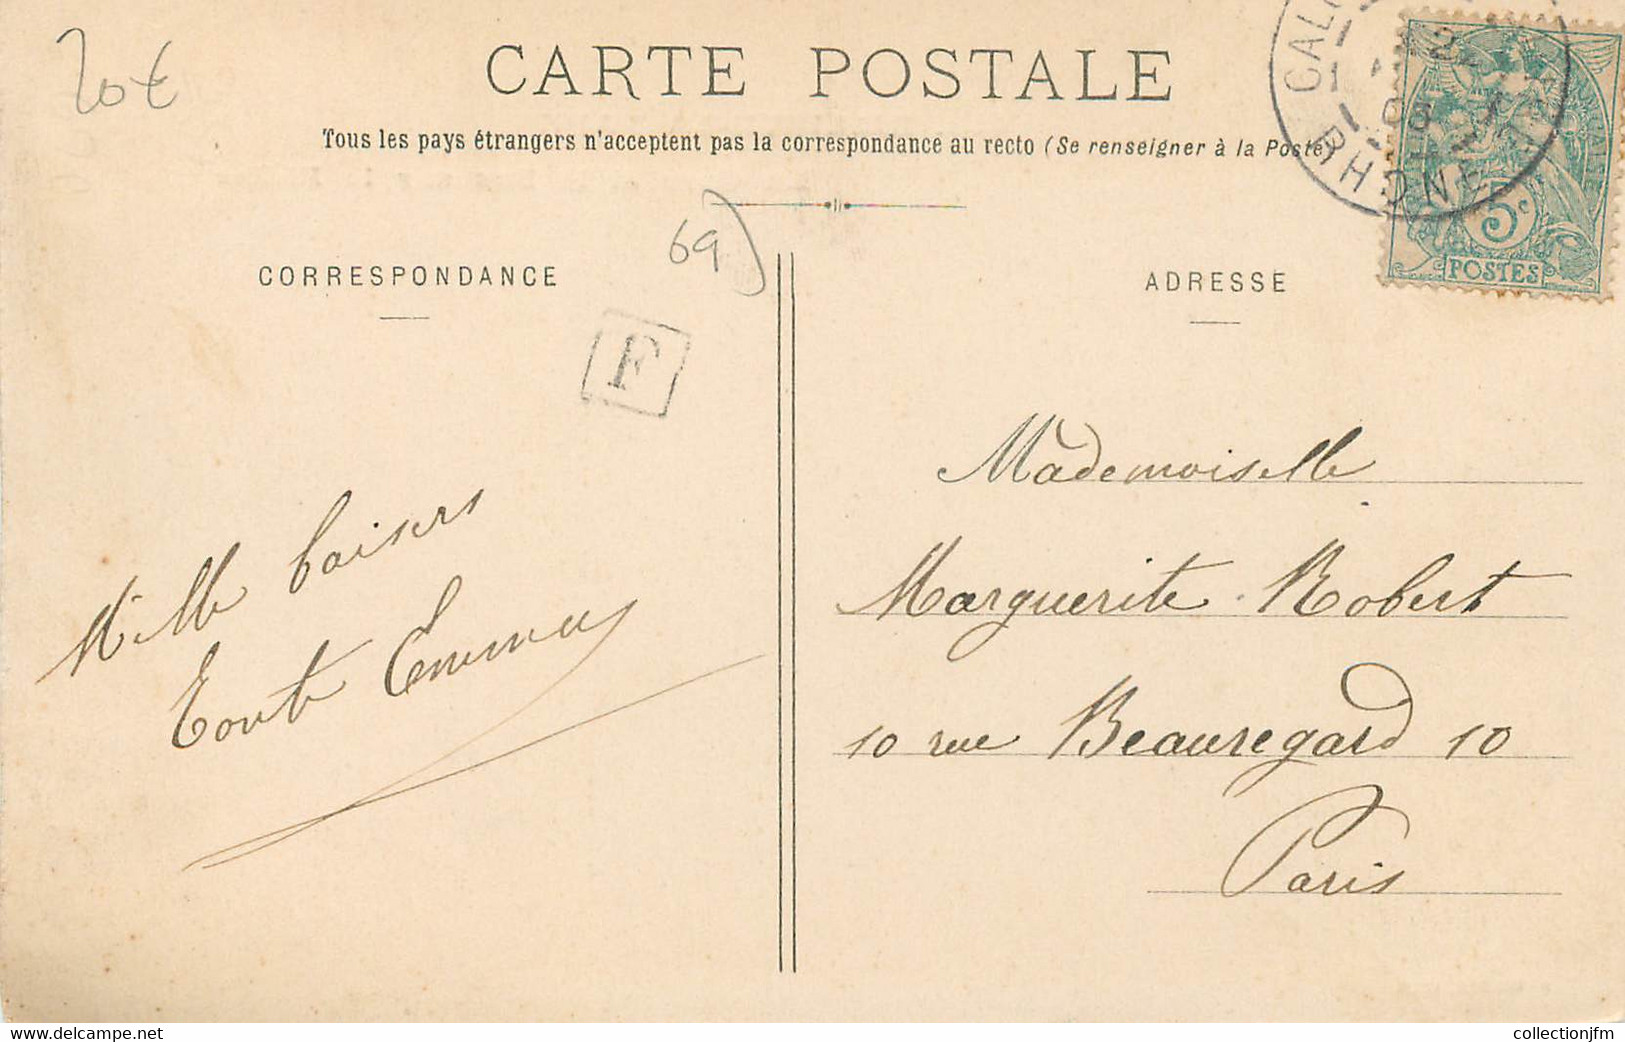 20€
CARTE POSTALE
Tous les pays étrangers n'acceptent pas la correspondance au recto (Se renseigner à la Poste)
69
CORRESPONDANCE
ADRESSE
F
CAL
RHONE
08
5c
POSTES
Mille baisers
Mademoiselle
Marguerite Robert
10 rue Beauregard 10
Paris
www.delcampe.net
collectionjfm